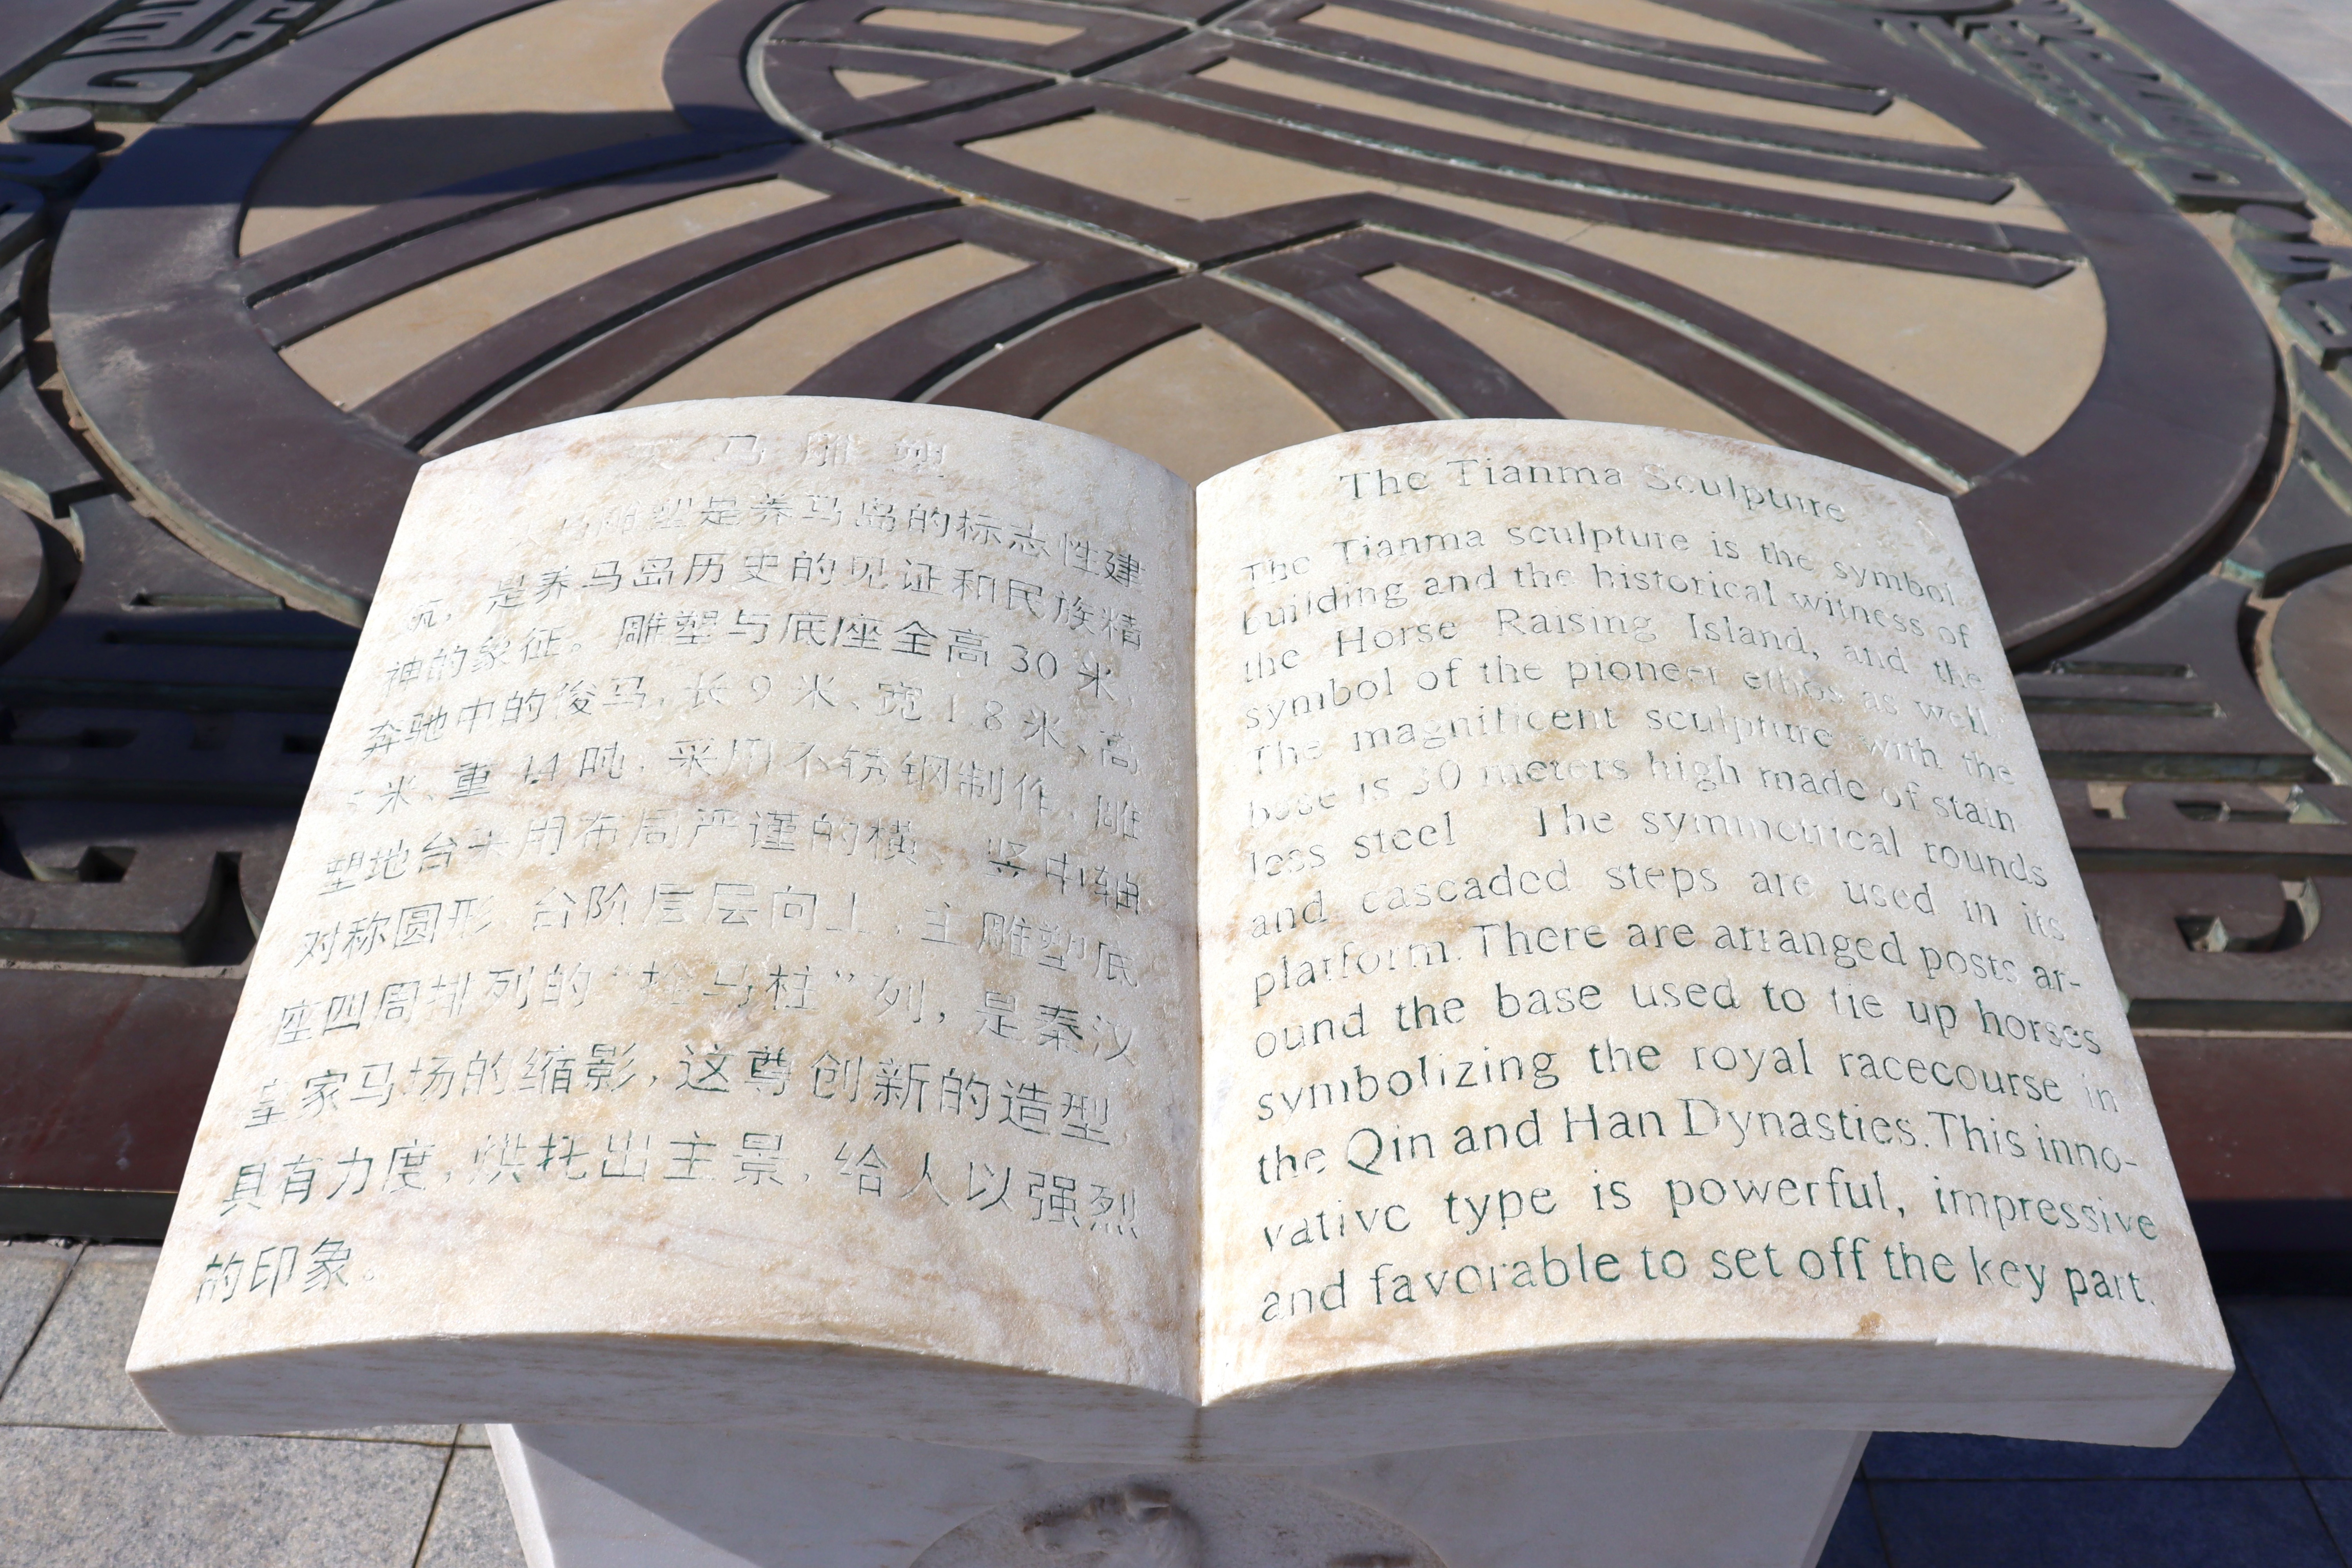 天马雕塑
天马雕塑是养马岛的标志性建
筑，是养马岛历史的见证和民族精
神的象征。雕塑与底座全高30米，
奔驰中的俊马，长9米、宽1.8米、高
5米、重14吨，采用不锈钢制作，雕
塑地台采用布局严谨的横、竖中轴
对称圆形，台阶层层向上，主雕塑底
座四周排列的“拴马桩”列，是秦汉
皇家马场的缩影，这尊创新的造型，
具有力度，烘托出主景，给人以强烈
的印象。
The Tianma Sculpture
The Tianma sculpture is the symbol
building and the historical witness of
the Horse Raising Island, and the
symbol of the pioneer ethos as well.
The magnificent sculpture with the
base is 30 meters high made of stain
less steel The symmetrical rounds
and cascaded steps are used in its
platform. There are arranged posts ar-
ound the base used to tie up horses
symbolizing the royal racecourse in
the Qin and Han Dynasties. This inno-
vative type is powerful, impressive
and favorable to set off the key part.